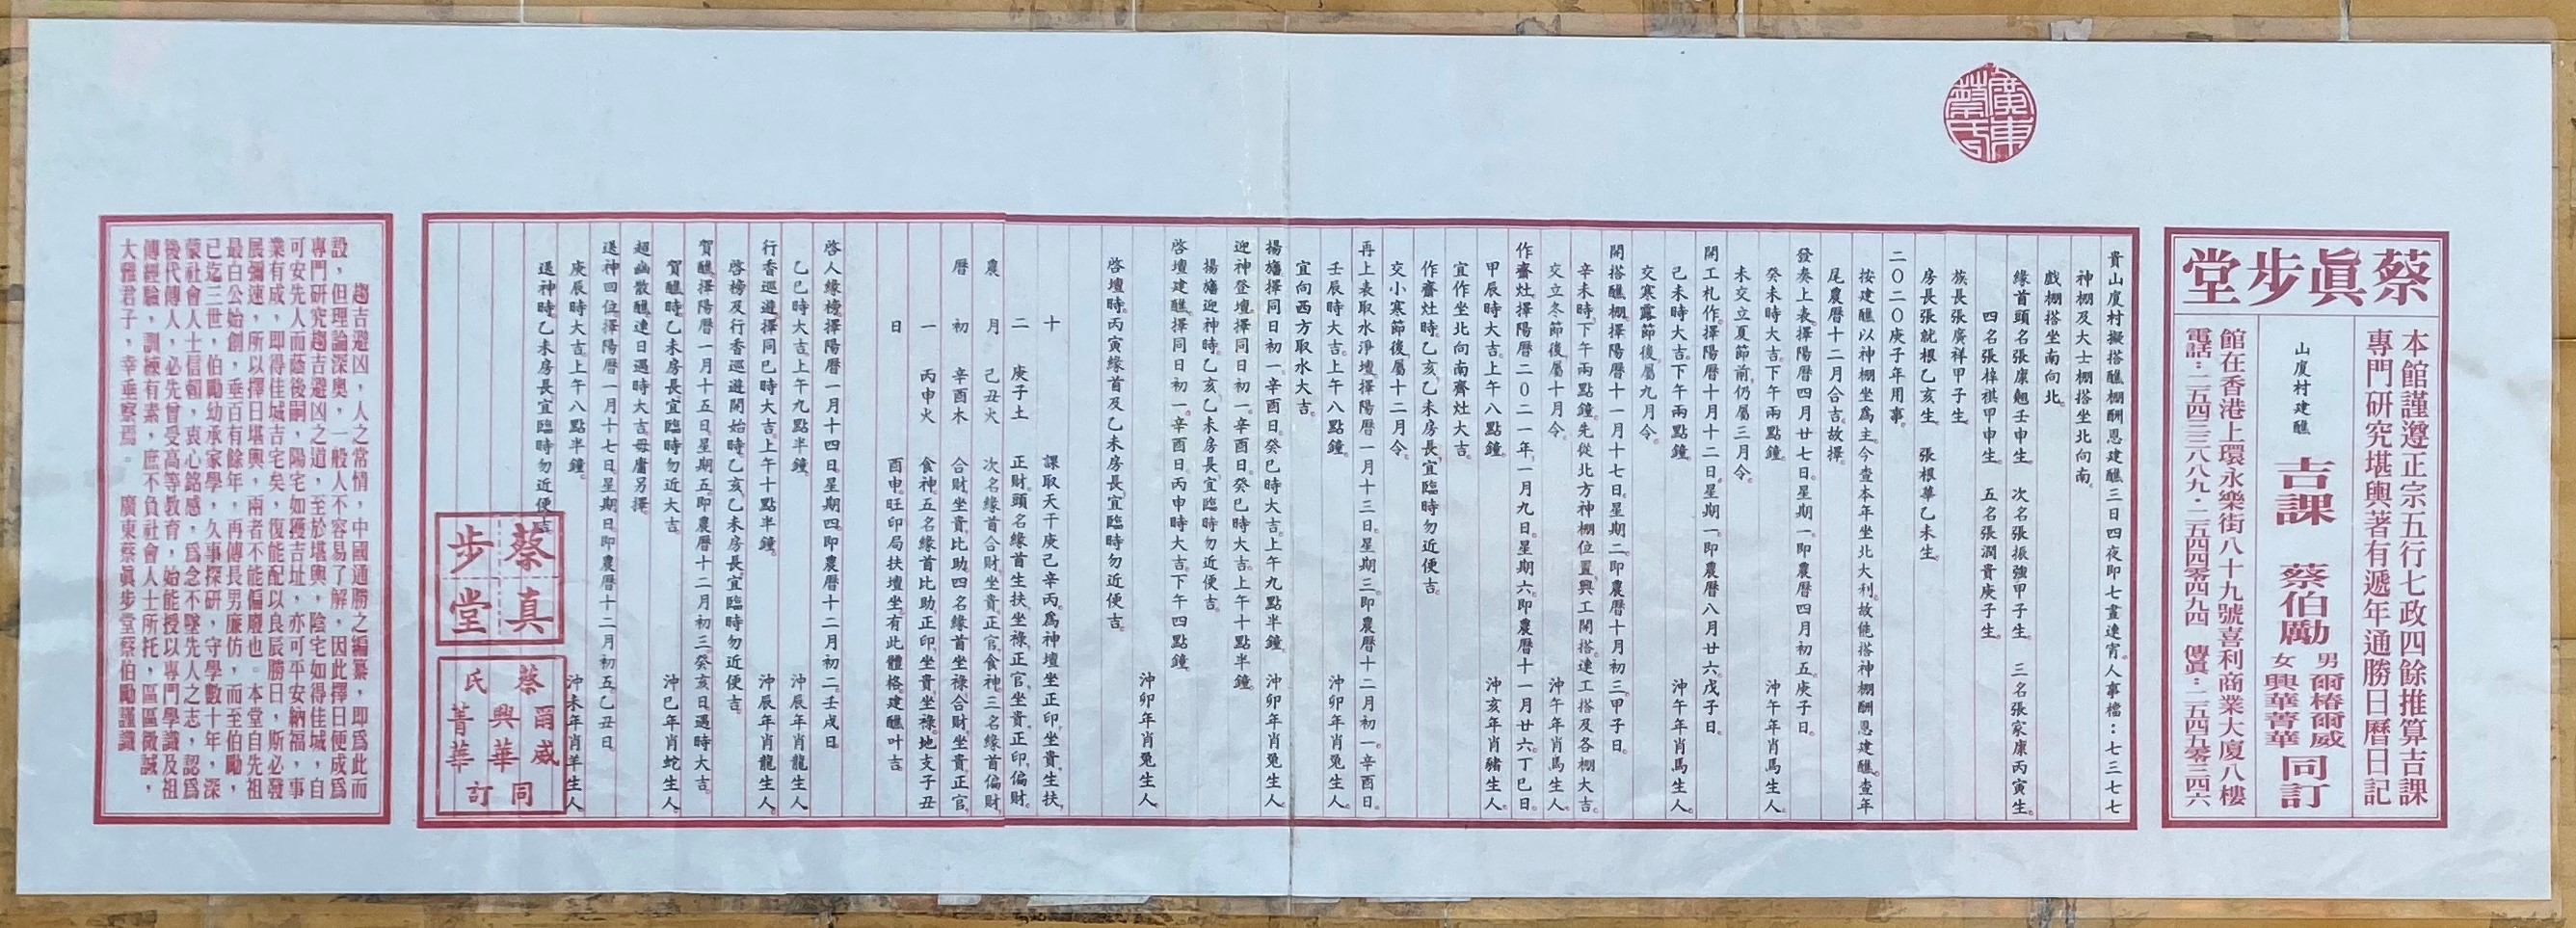 廣東
蔡氏
蔡眞步堂
本館謹遵正宗五行七政四餘推算吉課
專門研究堪輿著有遞年通勝日曆日記
山廈村建醮
吉課 蔡伯勵 男爾椿爾威 女興華菁華 同訂
館在香港上環永樂街八十九號喜利商業大廈八樓
電話：二五四三三八八九・二五四四零四九四 傳真：二五四五零三四六
貴山廈村擬搭醮棚酬恩建醮三日四夜即七晝連宵人事檔：七三七七
神棚及大士棚搭坐北向南。
戲棚搭坐南向北。
緣首頭名張康勉壬申生 次名張振強甲子生。 三名張家康丙寅生。
四名張梓祺甲申生。 五名張潤貴庚子生。
族長張廣祥甲子生。
房長張就根乙亥生。 張根華乙未生。
二〇二〇庚子年用事。
按建醮以神棚坐為主。今查本年坐北大利。故能搭神棚酬恩建醮。查年
尾農曆十二月合吉。故擇。
發奏上表。擇陽曆四月廿七日。星期一。即農曆四月初五。庚子日。
癸未時大吉。下午兩點鐘。 沖午年肖馬生人。
未交立夏節前。仍屬三月令。
開工札作。擇陽曆十月十二日。星期一。即農曆八月廿六戊子日。
己未時大吉。下午兩點鐘。 沖午年肖馬生人。
交寒露節後。屬九月令。
開搭醮棚。擇陽曆十一月十七日。星期二。即農曆十月初三。甲子日。
辛未時。下午兩點鐘。先從北方神棚位置。興工開搭。連工搭及各棚大吉。
交立冬節後。屬十月令。 沖午年肖馬生人。
作齋灶。擇陽曆二〇二一年。一月九日。星期六。即農曆十一月廿六。丁巳日。
甲辰時大吉。上午八點鐘。 沖亥年肖豬生人。
宜作坐北向南齋灶大吉。
作齋灶時。乙亥。乙未房長。宜臨時勿近便吉。
交小寒節後。屬十二月令。
再上表取水淨壇。擇陽曆一月十三日。星期三。即農曆十二月初一。辛酉日。
壬辰時大吉。上午八點鐘。 沖卯年肖兔生人。
宜向西方取水大吉。
揚旛擇同日初一。辛酉日。癸巳時大吉。上午九點半鐘。 沖卯年肖兔生人。
迎神登壇。擇同日初一。辛酉日。癸巳時大吉。上午十點半鐘。
揚旛迎神時。乙亥。乙未房長。宜臨時勿近便吉。
啓壇建醮。擇同日初一。辛酉日。丙申時大吉。下午四點鐘。
沖卯年肖兔生人。
啓壇時。丙寅緣首及乙未房長宜臨時勿近便吉。
十 課取天干庚己辛丙。為神壇坐正印坐貴。生扶。
二 庚子土 正財。頭名緣首生扶。坐祿。正官。坐貴。正印。偏財。
農 月 己丑火 次名緣首合財。坐貴。正官。食神。三名緣首偏財。
曆 初 辛酉木 合財。坐貴。比助。四名緣首坐祿。合財。坐貴。正官。
一 丙申火 食神。五名緣首比助。正印。坐貴。坐祿。地支子丑
日 酉申旺印局扶壇坐。有此體格。建醮叶吉。
啓人緣榜。擇陽曆一月十四日。星期四。即農曆十二月初二。壬戌日。
乙巳時大吉。上午九點半鐘。 沖辰年肖龍生人。
行香巡遊。擇同巳時大吉。上午十點半鐘。 沖辰年肖龍生人。
啓榜及行香巡遊開始時。乙亥。乙未房長。宜臨時勿近便吉。
賀醮。擇陽曆一月十五日。星期五。即農曆十二月初三癸亥日。遇時大吉。
賀醮時。乙未房長宜臨時勿近大吉。 沖巳年肖蛇生人。
超幽散醮。連日遇時大吉。毋庸另擇。
送神回位。擇陽曆一月十七日。星期日。即農曆十二月初五。乙丑日。
庚辰時大吉。上午八點半鐘。 沖未年肖羊生人。
送神時。乙未房長宜臨時勿近便吉。
蔡真
步堂
蔡氏
爾威
興華
菁華
同訂
趨吉避凶，人之常情，中國通勝之編纂，即為此而
設，但理論深奧，一般人不容易了解，因此擇日便成為
專門研究趨吉避凶之道，至於堪輿，陰宅如得佳城，自
可安先人而蔭後嗣，陽宅如獲吉址，亦可平安納福，事
業有成，即得佳城吉宅矣，復能配以良辰勝日，斯必發
展彌速，所以擇日堪輿，兩者不能偏廢也。本堂自先祖
最白公始創，垂百有餘年，再傳長男廉仿，而至伯勵，
已迄三世，伯勵幼承家學，久事探研，守學數十年，深
蒙社會人士信賴，衷心銘感，為念不墜先人之志，認為
後代傳人，必先曾受高等教育，始能授以專門學識及祖
傳經驗，訓練有素，庶不負社會人士所托，區區微誠，
大雅君子，幸垂察焉。 廣東蔡眞步堂蔡伯勵謹識